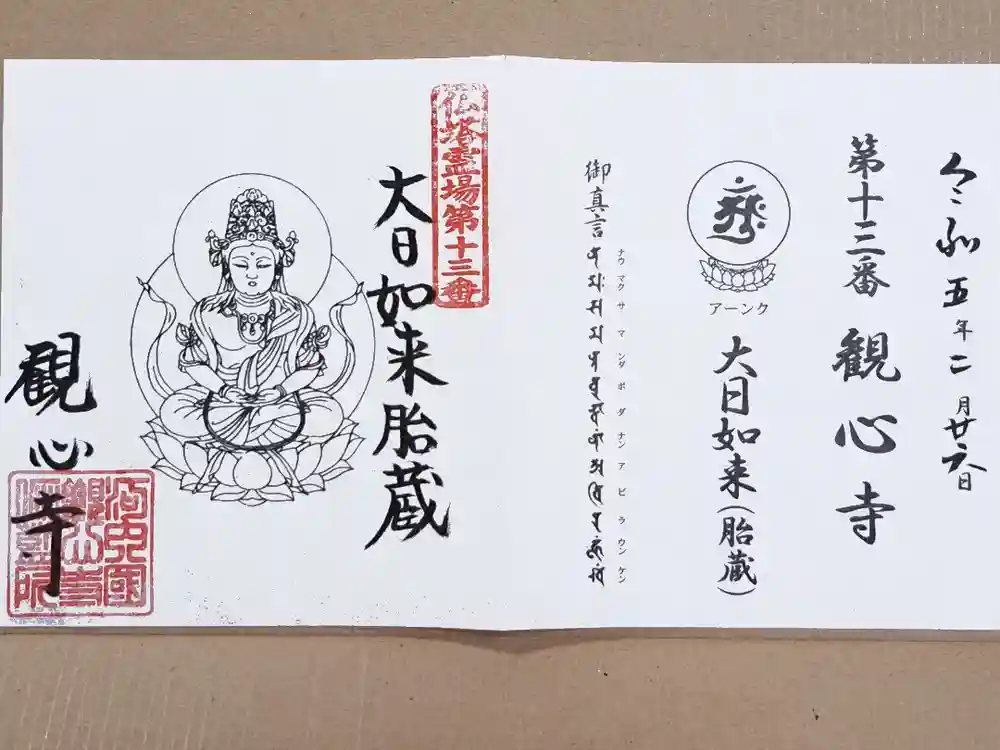 令和五年二月廿六日
第十三番 観心寺
アーンク
大日如来(胎蔵)
ナウマクサマンダボダナンアビラウンケン
御真言
仏塔霊場第十三番
大日如来胎蔵
観心寺